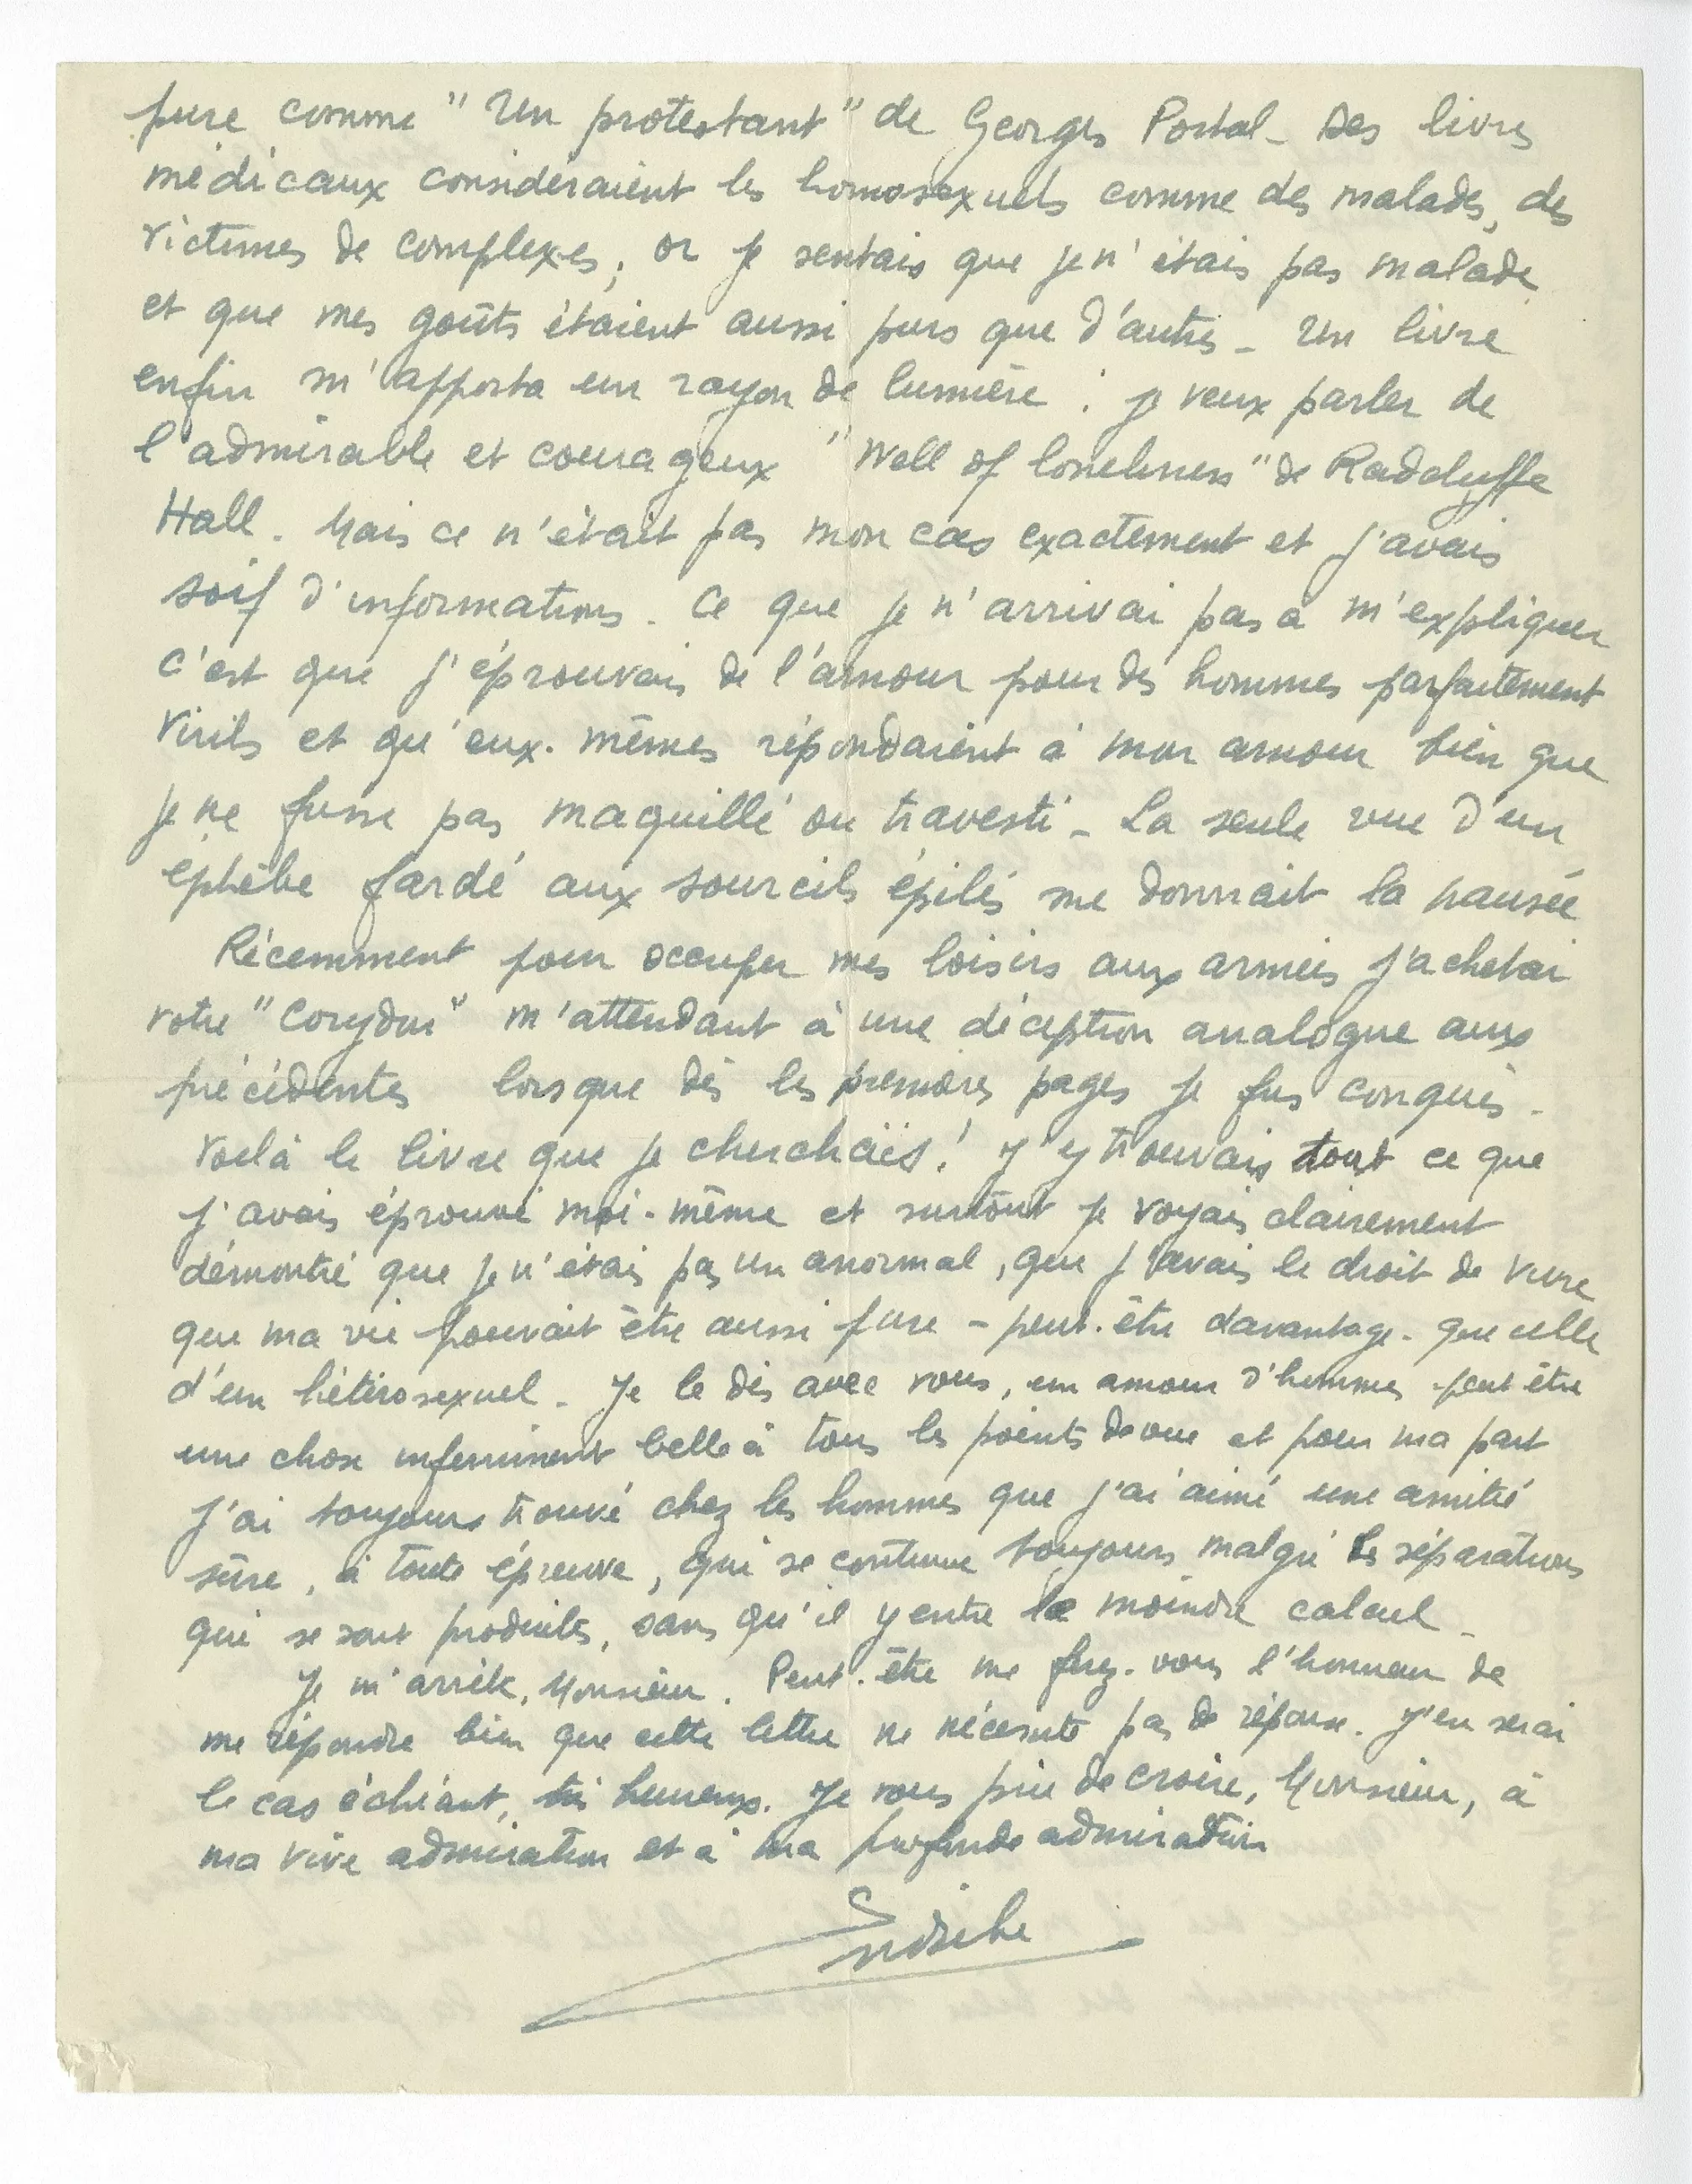 pure comme " Un protestant " de Georges Portal _ Des livres
médicaux considéraient les homosexuels comme des malades, des
victimes de complexes, or je sentais que je n'étais pas malade
et que mes goûts étaient aussi purs que d'autres _ Un livre
enfin m'apporta un rayon de lumière : je veux parler de
l'admirable et courageux " Well of loneliness " de Radclyffe
Hall . Mais ce n'était pas mon cas exactement et j'avais
soif d'informations . Ce que je n'arrivai pas à m'expliquer
c'est que j'éprouvais de l'amour pour des hommes parfaitement
virils et qu'eux-mêmes répondaient à mon amour bien que
je ne fusse pas maquillé ou travesti _ La seule vue d'un
éphèbe fardé aux sourcils épilés me donnait la nausée
Récemment pour occuper mes loisirs aux armées j'achetai
votre " Corydon " m'attendant à une déception analogue aux
précédentes lorsque dès les premières pages je fus conquis _
Voilà le livre que je cherchais ! J'y trouvais tout ce que
j'avais éprouvé moi-même et surtout je voyais clairement
démontré que je n'étais pas un anormal, que j'avais le droit de vivre
que ma vie pouvait être aussi pure - peut-être davantage - que celle
d'un hétérosexuel _ Je le dis avec vous, un amour d'hommes peut être
une chose infiniment belle à tous les points de vue et pour ma part
j'ai toujours trouvé chez les hommes que j'ai aimé une amitié
sûre, à toute épreuve, qui se continue toujours malgré les séparations
qui se sont produites, sans qu'il y entre le moindre calcul _
Je m'arrête, Monsieur . Peut-être me ferez-vous l'honneur de
me répondre bien que cette lettre ne nécessite pas de réponse . J'en serai
le cas échéant, très heureux . Je vous prie de croire, Monsieur, à
ma vive admiration et à ma profonde admiration